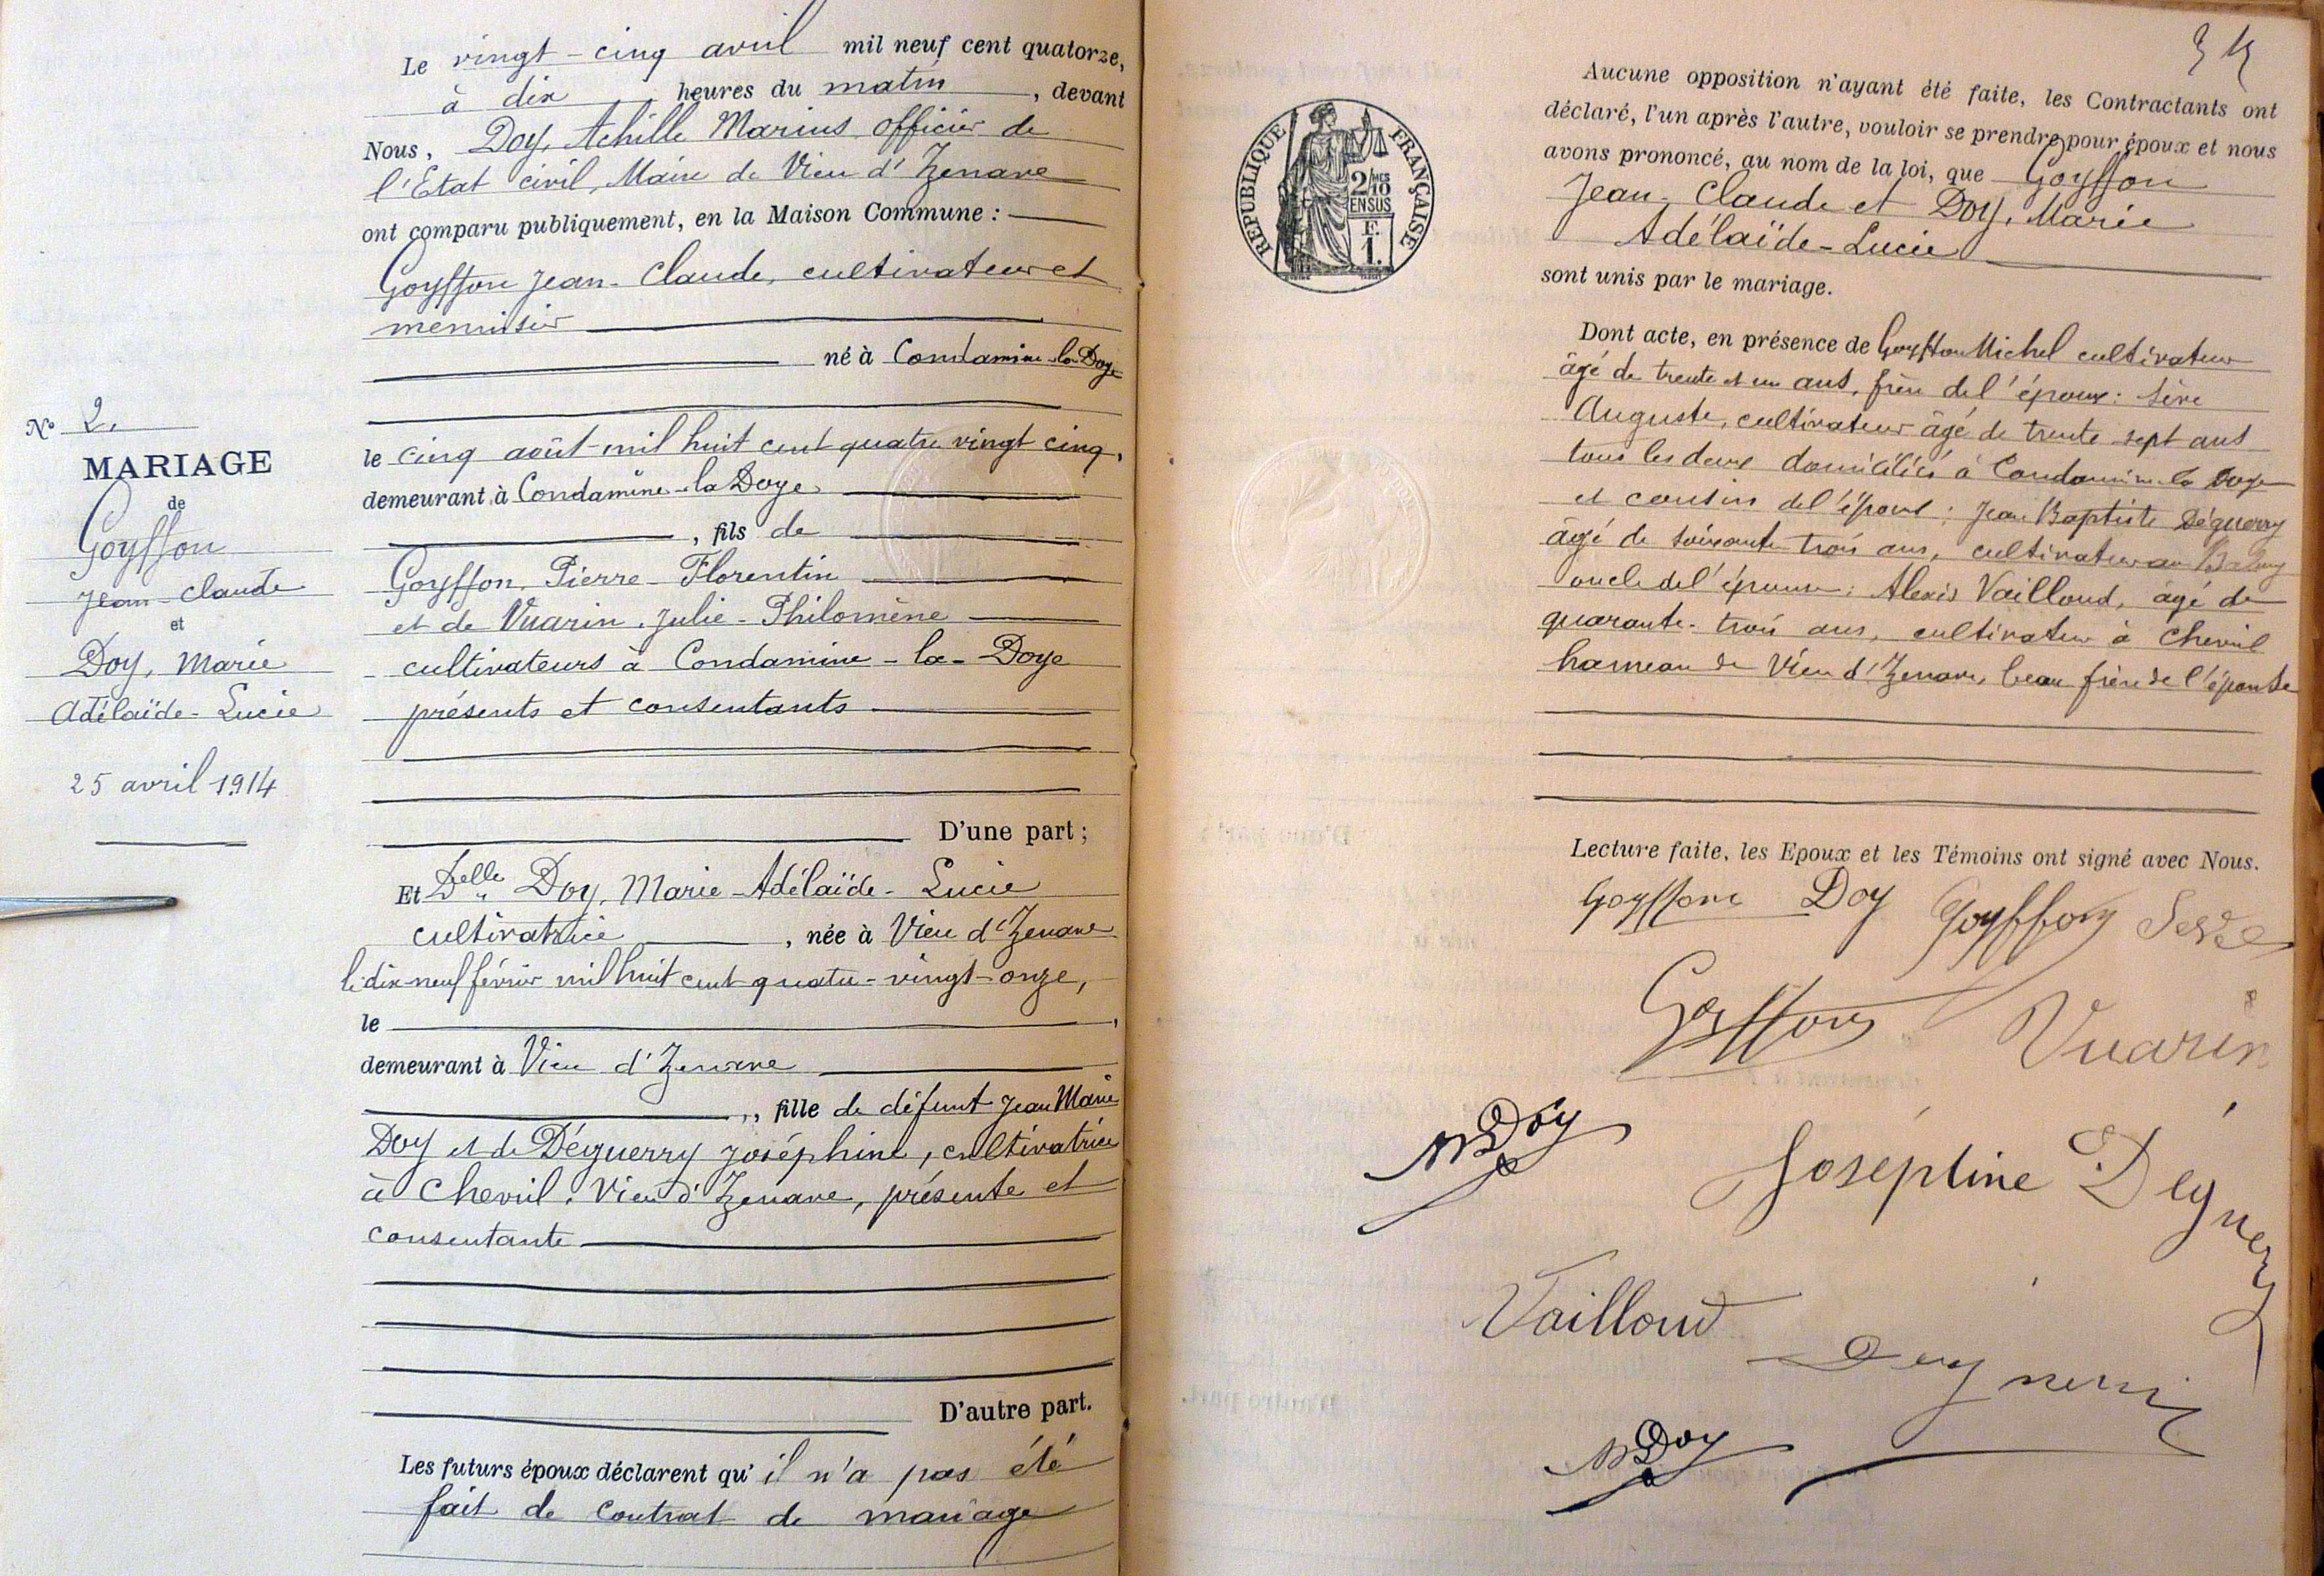 Le vingt-cinq avril mil neuf cent quatorze,
à dix heures du matin, devant
Nous, Doy, Achille Marius officier de
l'Etat civil, Maire de Vieu d'Izenave
ont comparu publiquement, en la Maison Commune :
Goyffon Jean-Claude, cultivateur et
menuisier
né à Condamine-la-Doye
le cinq août mil huit cent quatre vingt cinq,
demeurant à Condamine-la Doye
, fils de
Goyffon, Pierre-Florentin
et de Vuarin, Julie-Philomène
cultivateurs à Condamine-la-Doye
présents et consentants
D'une part ;
Et Delle Doy, Marie-Adélaïde-Lucie
cultivatrice, née à Vieu d'Izenave
le dix-neuf février mil huit cent quatre-vingt-onze,
le
demeurant à Vieu d'Izenave
, fille de défunt Jean Marie
Doy et de Déguerry Joséphine, cultivatrice
à Chevril, Vieu d'Izenave, présente et
consentante
D'autre part.
Les futurs époux déclarent qu'il n'a pas été
fait de contrat de mariage
No 2.
MARIAGE
de
Goyffon
Jean-Claude
et
Doy, Marie
Adélaïde-Lucie
25 avril 1914
RÉPUBLIQUE FRANÇAISE
2/10MES
EN SUS
F.
1.
Aucune opposition n'ayant été faite, les Contractants ont
déclaré, l'un après l'autre, vouloir se prendre pour époux et nous
avons prononcé, au nom de la loi, que Goyffon
Jean-Claude et Doy, Marie
Adélaïde-Lucie
sont unis par le mariage.
Dont acte, en présence de Goyffon Michel cultivateur
âgé de trente et un ans, frère de l'époux : Sève
Auguste, cultivateur âgé de trente sept ans
tous les deux domiciliés à Condamine la Doye
et cousin de l'époux ; Jean Baptiste Déguerry
âgé de soixante trois ans, cultivateur au
oncle de l'épouse ; Alexis Vailloud, âgé de
quarante-trois ans, cultivateur à Chevril
hameau de Vieu d'Izenave, beau frère de l'épouse
Lecture faite, les Epoux et les Témoins ont signé avec Nous.
Goyffon Doy Goyffon Sève
Goyffon Vuarin
Doy
Joséphine Déguerry
Vailloud
Doy